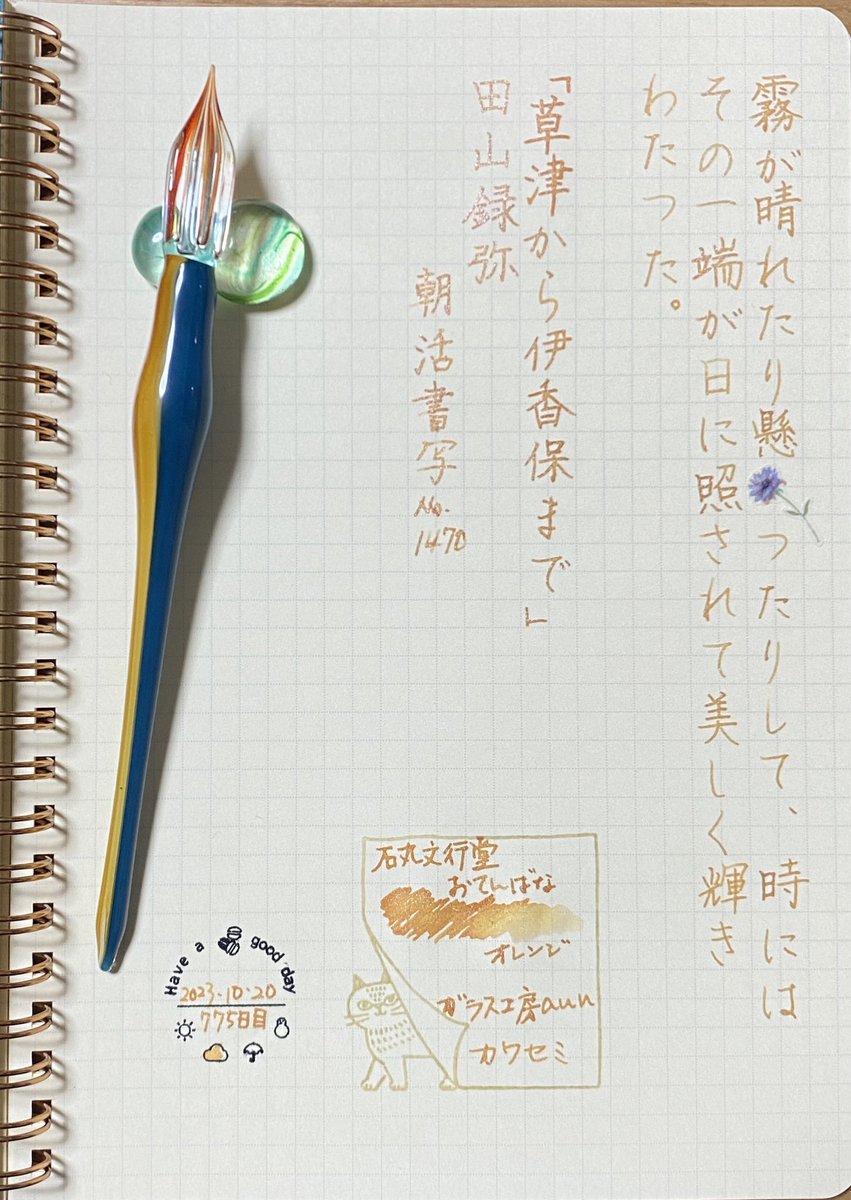 霧が晴れたり懸つたりして、時には
その一端が日に照されて美しく輝き
わたつた。
「草津から伊香保まで」
田山録弥
朝活書写No.1470
石丸文行堂
おてんばな
オレンジ
ガラス工房aun
カワセミ
Have a good day
2023.10.20
775日目